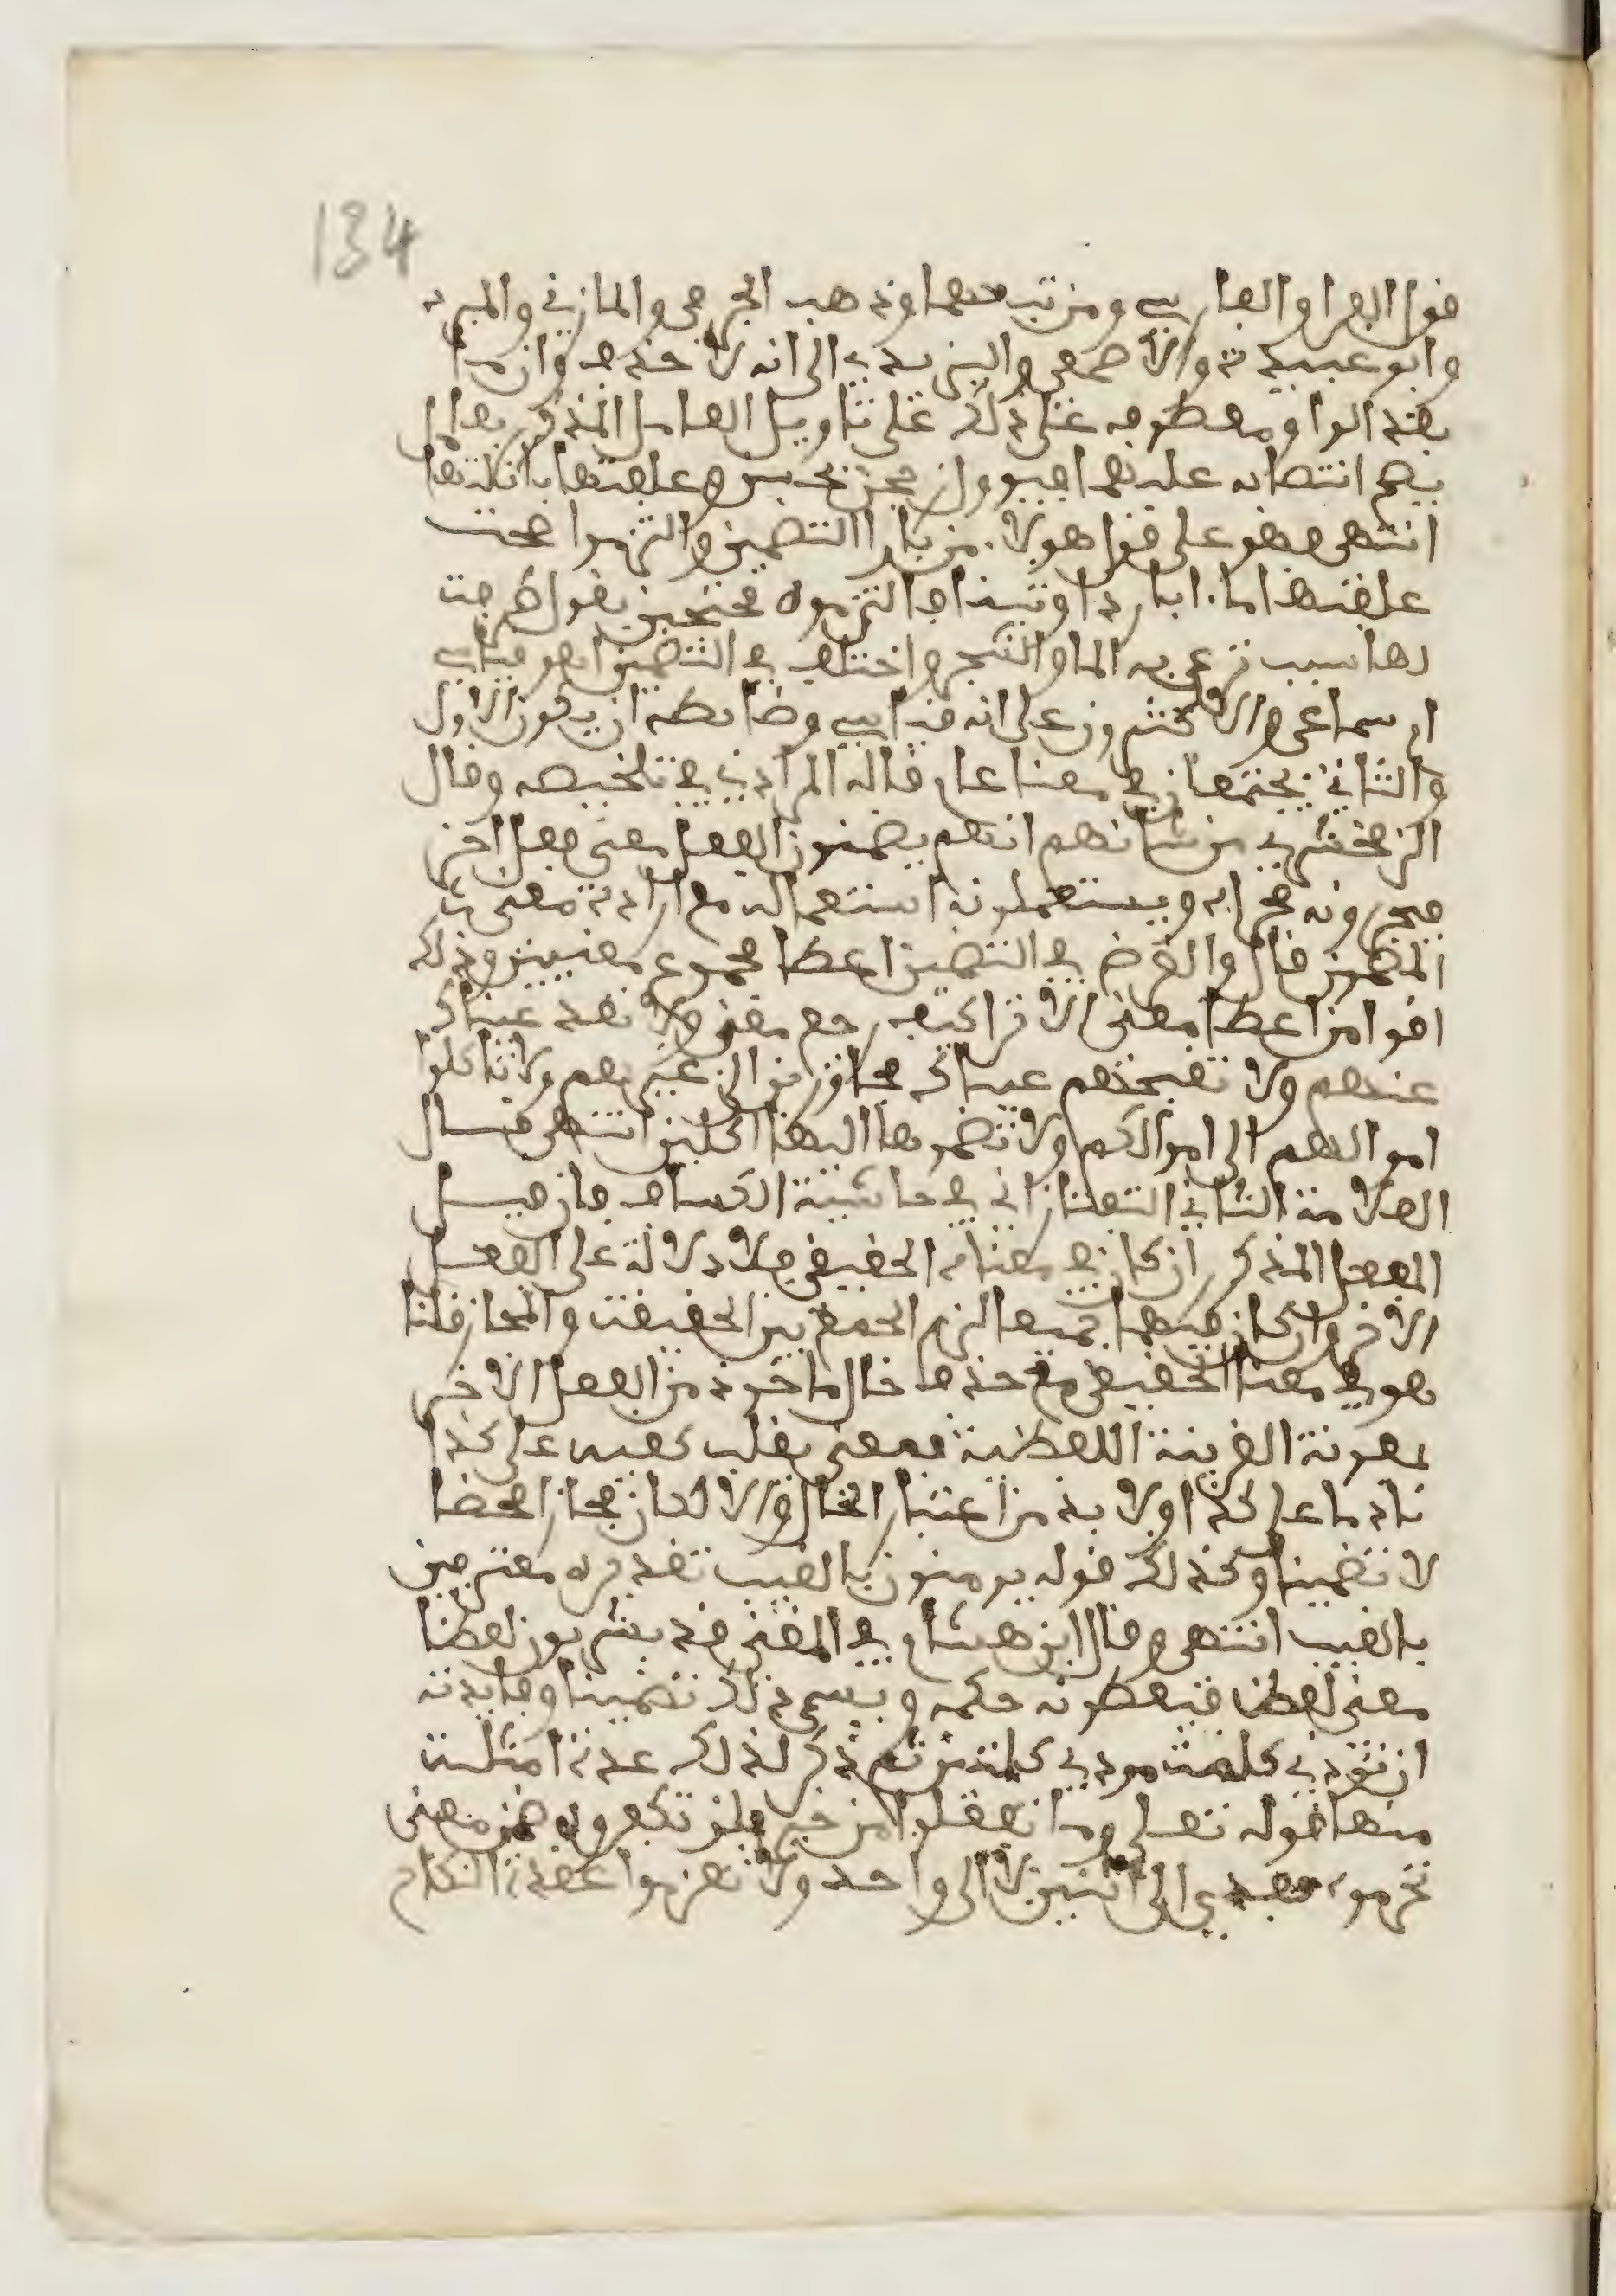 134
قول الفرا والفارسي ومن تبعهما وذهب الجرمي والمازني والمبرد
وابو عبيدة والاصمعي واليزيدي الى انه لا حذف وان ما
بعد الواو معطوف على ذلك على تاويل العامل المذكور بعامل
يصح انتصابه عليهما
انتهى فهو على قول هولاء من باب التضمين والتزموا صحت
علفتها ماء باردا وتبنا والتزموه محتجين بقول طرفة
لها سبب ترعى به الماء والشجر واختلف في التضمين اهو قياسي
او سماعي والاكثرون على انه قياسي وضابطه ان يكون الاول
والثاني يجتمعان في معنى عام قاله المرادي في تلخيصه وقال
الزمخشري من شانهم انهم يضمنون الفعل معنى فعل اخر
فيجرونه مجراه ويستعملونه استعماله مع ارادة معنى
المضمن قال والغرض في التضمين اعطا مجموع معنيين وذلك
اقوا من اعطا معنى الا ترا كيف رجع معنى ولا تعد عيناك
عنهم ولا تقتحمهم عيناك مجاوزتين الى غيرهم ولا تاكلوا
اموالهم الى اموالكم ولا تضموها اليها اكلين انتهى قال
العلامة الثاني التفتازاني في حاشية الكشاف فان قيل
الفعل المذكور ان كان في معناه الحقيقي فلا دلالة على الفعل
الاخر وان كان فيهما جميعا لزم الجمع بين الحقيقة والمجاز قلنا
هو في معناه الحقيقي مع حذف حال ماخوذ من الفعل الاخر
بمعونة القرينة اللفظية فمعنى يقلب كفيه على كذا
نادما على كذا ولا بد من اعتبار الحال والا لكان مجازا محضا
لا تضمينا وكذلك قوله يومنون بالغيب تقديره معترفين
بالغيب انتهى وقال ابن هشام في المغني قد يشربون لفظا
معنى لفظ فيعطونه حكمه ويسمى ذلك تضمينا وفايدته
ان تؤدي كلمة مودي كلمتين ثم ذكر لذلك عدة امثلة
منها قوله تعالى وما تفعلوا من خير فلن تكفروه ضمن معنى
تحرموه فعدي الى اثنين لا الى واحد ولا تعزموا عقدة النكاح